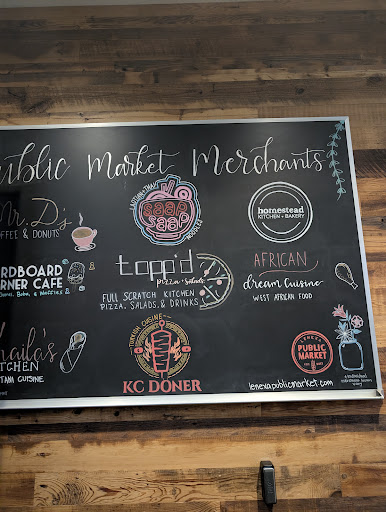 ublic Market Merchants
Mr. D's
FFEE & DONUTS
RDBOARD
RNER CAFE
haila's
TCHEN
TAMA CUISINE
SAAP
SAAP
topp'd
pizza + salads
FULL SCRATCH KITCHEN
PIZZA, SALADS, & DRINKS
TURKISH CUISINE
KC DÖNER
homestead
KITCHEN + BAKERY
AFRICAN
dream Cuisine
WEST AFRICAN FOOD
LENEXA
PUBLIC
MARKET
lenexapublicmarket.com